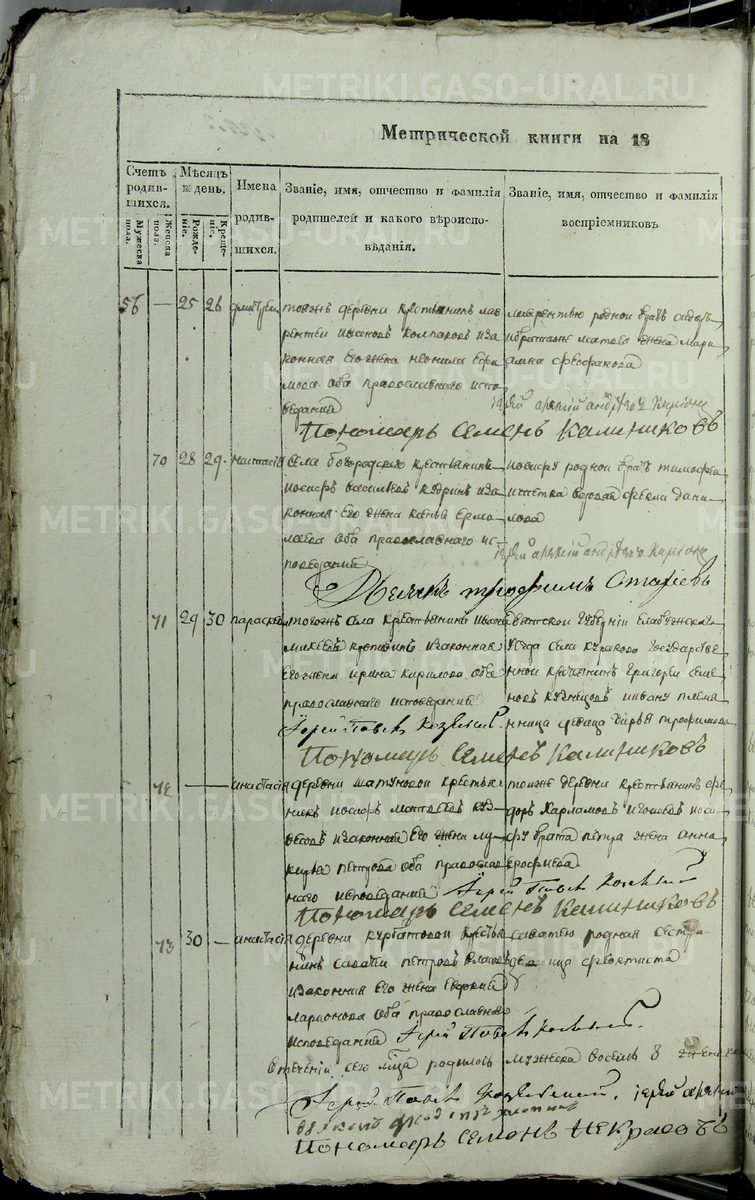 METRIKI.GASO-URAL.RU
Метрической книги на 18
Счетъ родив-шихся.
Мужеска пола.
Женска пола.
Мѣсяцъ и день.
Рожде-ніе.
Креще-ніе.
Имена родив-шихся.
Званіе, имя, отчество и фамилія
родителей и какого вѣроиспо-
вѣданія.
Званіе, имя, отчество и фамилія
воспріемниковъ.
56 — 25 26 дмитрей
тояжъ деревни крестьянинъ лав
рентей ивановъ колпаковъ иза
конная его жена неонила ефи
мова оба православнаго испо
ведания
лаврентью родной братъ сидоръ
и братаже матвея жена мари
амна феофанова
Пономарь Семенъ Калиниковъ
70 28 29 настасія
села богородскаго крестьянинъ
иосифъ васильевъ кудринъ иза
конная его жена ксенья ермо
лаева оба православнаго ис
поведания
иосифу родной братъ тимофей
и тетка вдовая фекла дани
лова
Дьячекъ трофимъ
71 29 30 параскева
тогожъ села крестьянинъ иванъ
михеевъ изаконная
его жена ирина кирилова оба
православнаго исповедания
вятской губерніи елабужскаго
уезда села куракова государстве
нной крестьянинъ григорей семе
новъ кузнецовъ ивану племя
нница девица дарья трофимова
Іерей Павелъ
Пономарь Семенъ Калиниковъ
72 — — анастасія
деревни шатуновой крестья
нинъ иосифъ матвеевъ
изаконная его жена лу
керья петрова оба православ
наго исповедания
тоежъ деревни крестьянинъ фе
доръ харламовъ иоси
фу брата петра жена анна
ерофиева
Іерей Павелъ
Пономарь Семенъ Калиниковъ
73 30 — анастасія
деревни курбатовой крестья
нинъ саватей петровъ
изаконная его жена евдокия
ларионова оба православнаго
исповедания
саватею родная сестра
девица феоктиста
Іерей Павелъ
втечении сего мца родилось мужеска восемь 8 женска
Іерей Павелъ
Пономарь Семенъ Некрасовъ